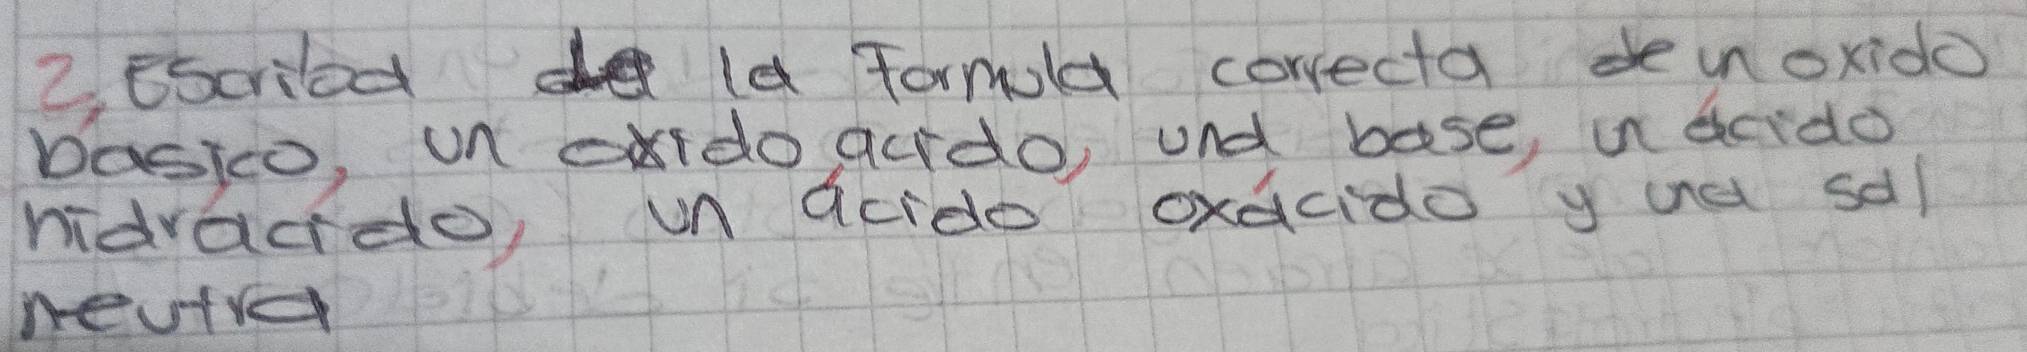 2, Escriba la Formula correcta de un oxido
basico, un oxido acido, una base, un ácido
hidrácido, un ácido oxácido y una sal
neutra